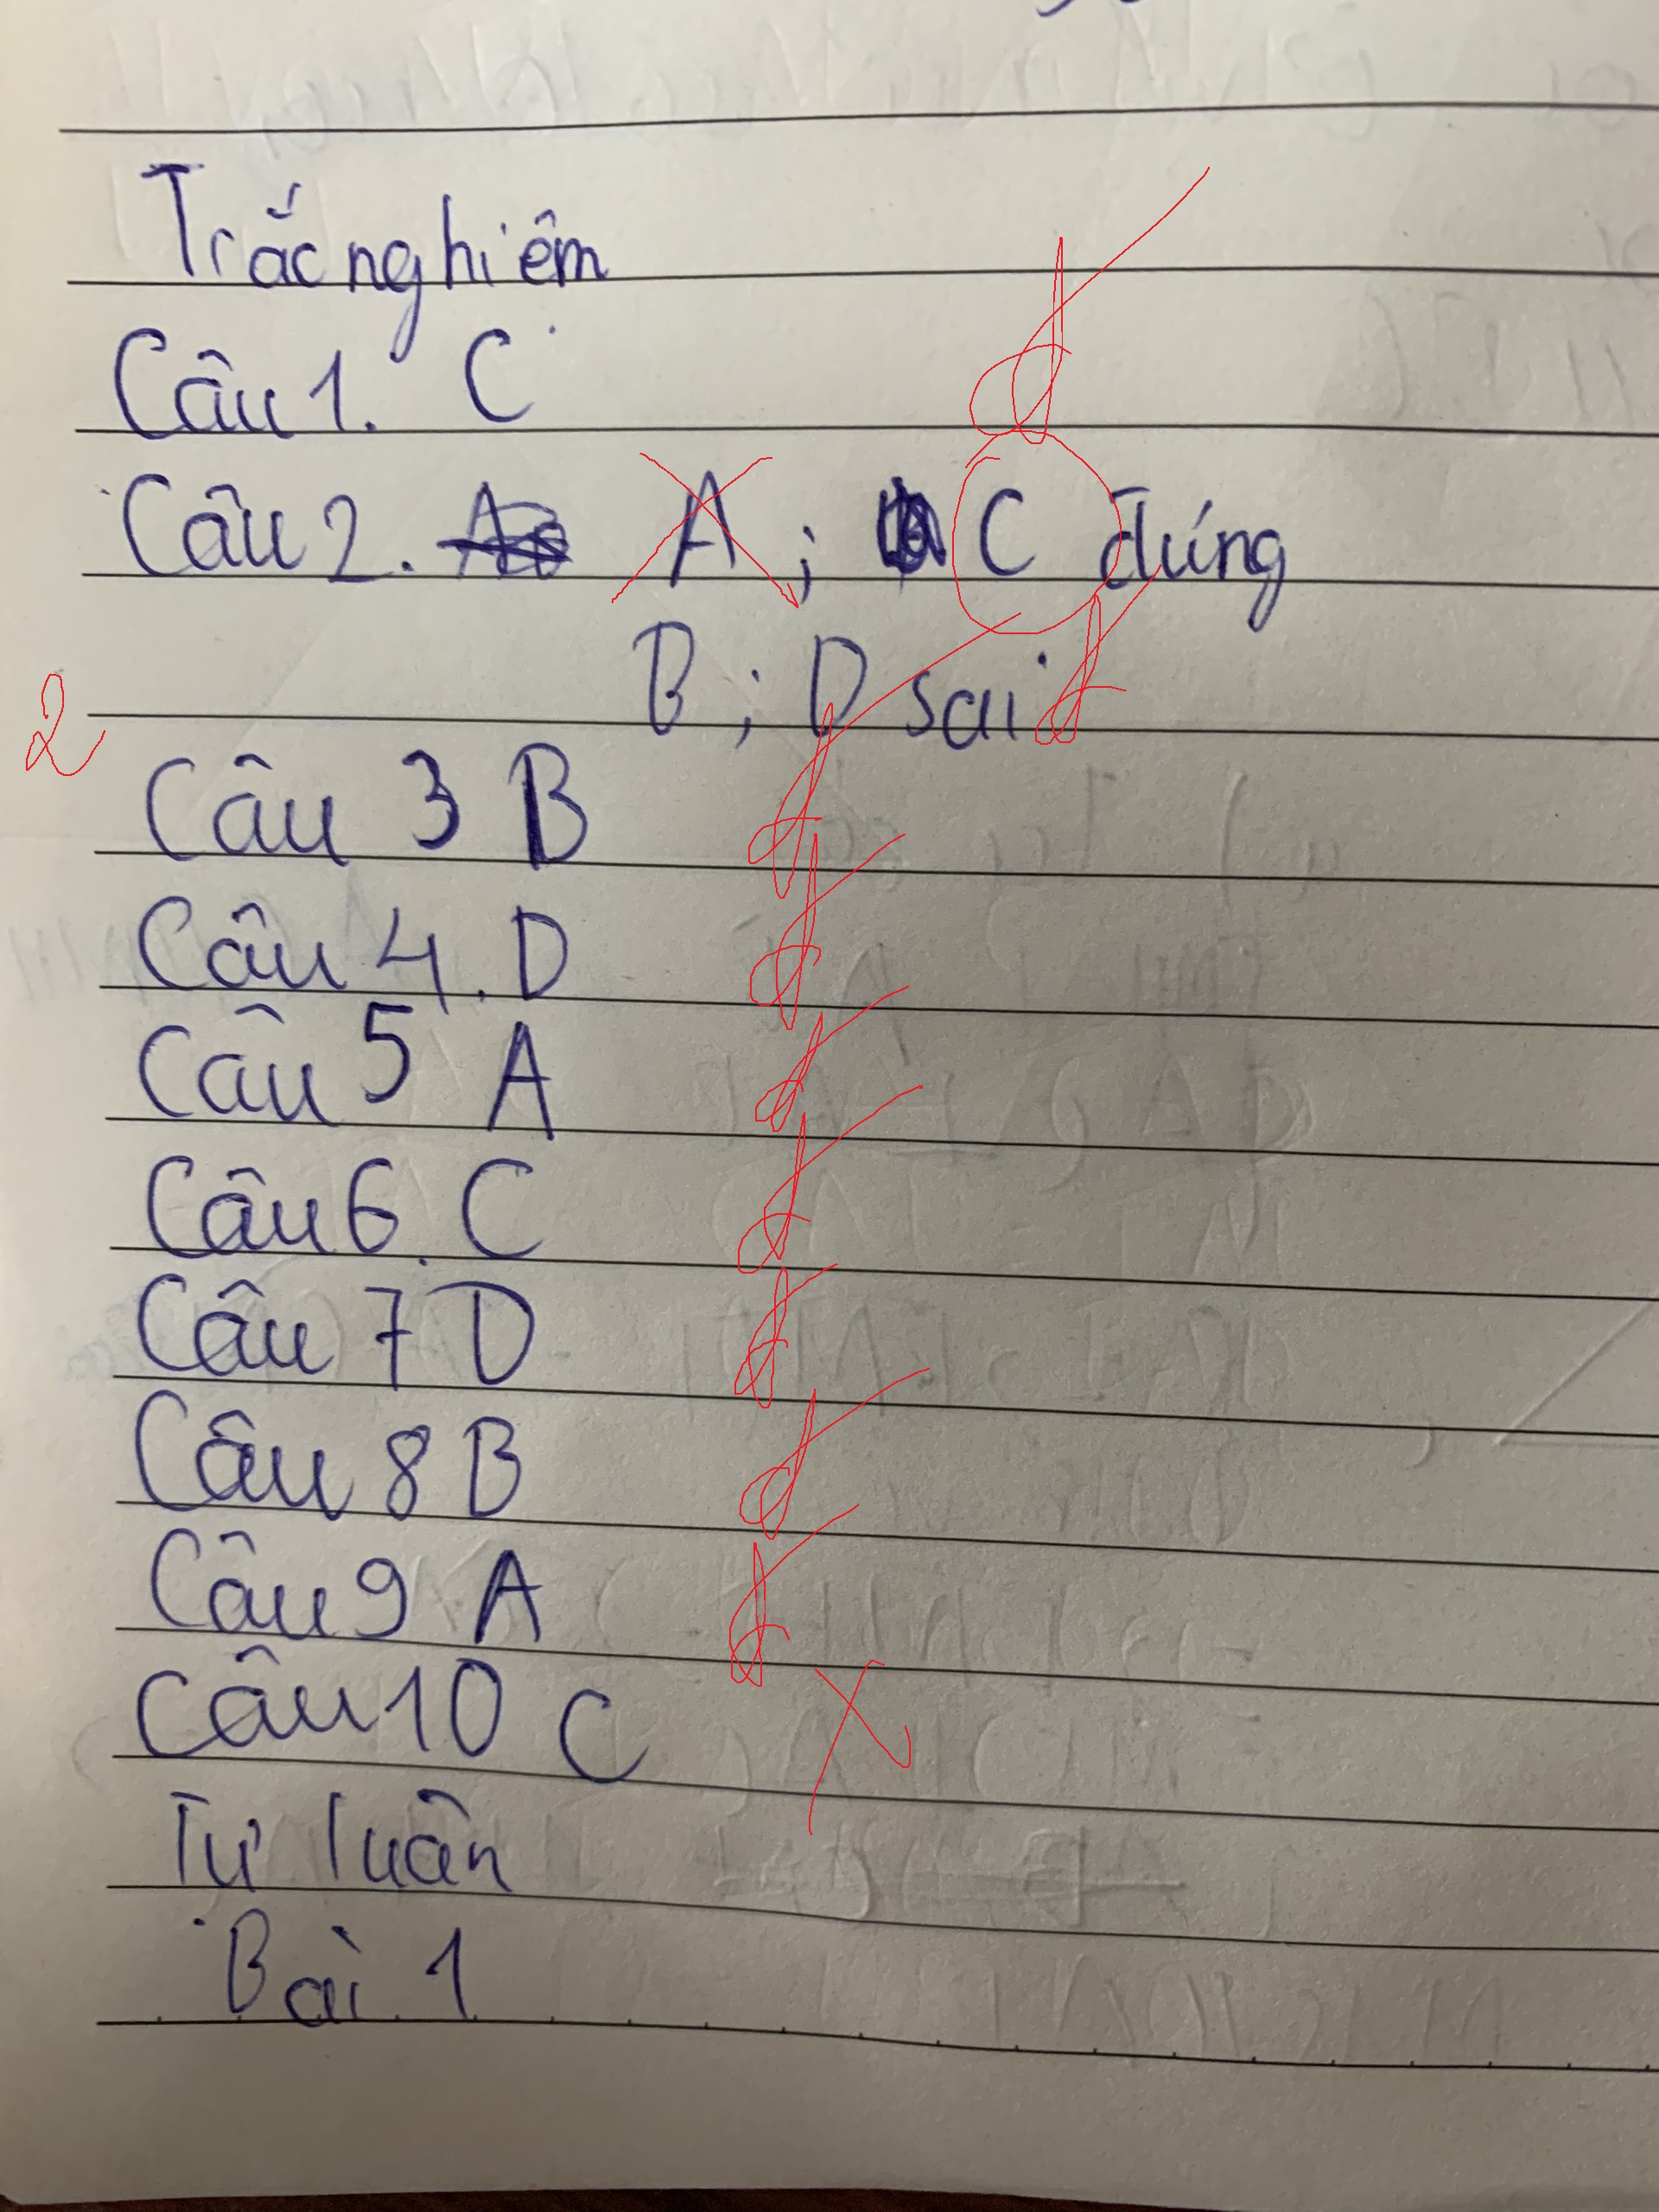 Trắc nghiệm
Câu 1. C
Câu 2. A ; C đúng
B ; D sai
2
Câu 3 B
Câu 4. D
Câu 5 A
Câu 6. C
Câu 7 D
Câu 8 B
Câu 9 A
Câu 10 C
Tự luân
Bài 1